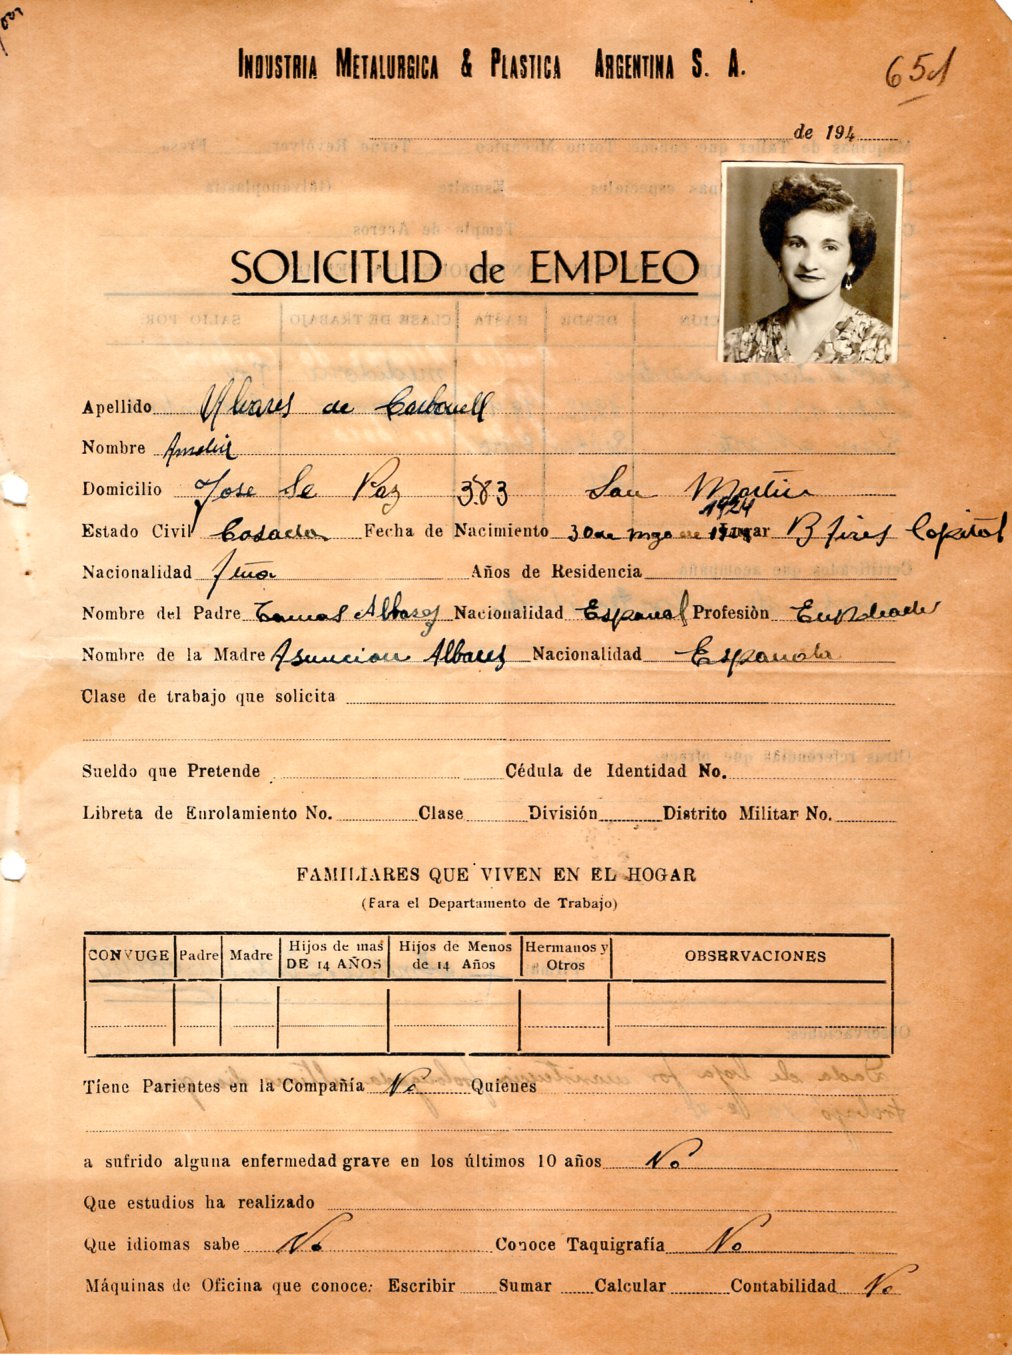 INDUSTRIA METALURGICA & PLASTICA ARGENTINA S. A.
651
de 194
SOLICITUD de EMPLEO
Apellido Alvares de Carbonell
Nombre Amelia
Domicilio Jose Se Paz 383 San Martin
1924
Estado Civil Casada Fecha de Nacimiento 30 de mayo de Lugar B Aires Capital
Nacionalidad
Años de Residencia
Nombre del Padre Tomas Albarez Nacionalidad Español Profesiòn Empleado
Nombre de la Madre Asuncion Albares Nacionalidad Española
Clase de trabajo que solicita
Sueldo que Pretende Cédula de Identidad No.
Libreta de Enrolamiento No. Clase División Distrito Militar No.
FAMILIARES QUE VIVEN EN EL HOGAR
(Para el Departamento de Trabajo)
CONYUGE Padre Madre Hijos de mas DE 14 AÑOS Hijos de Menos de 14 Años Hermanos y Otros OBSERVACIONES
Tiene Parientes en la Compañía No Quienes
a sufrido alguna enfermedad grave en los últimos 10 años No
Que estudios ha realizado
Que idiomas sabe No Conoce Taquigrafía No
Máquinas de Oficina que conoce: Escribir Sumar Calcular Contabilidad No